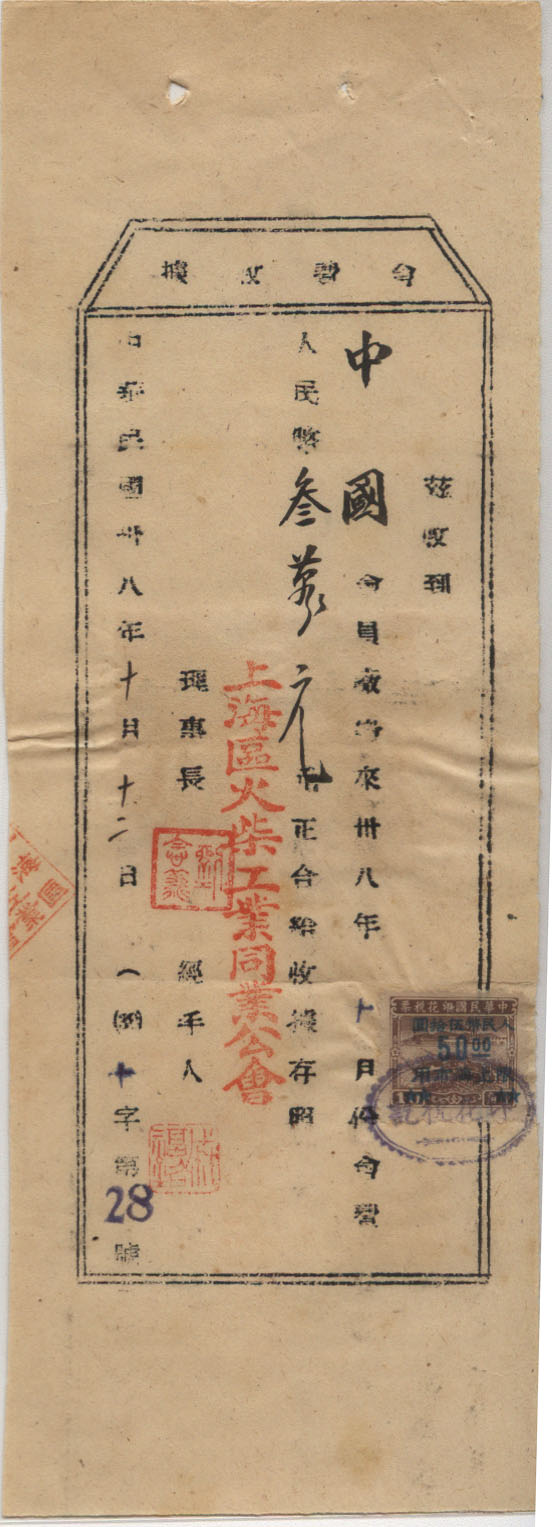 會費收據
茲收到
中國會員繳納來卅八年十月份會費
人民幣叁萬元 正合給收據存照
上海區火柴工業同業公會
理事長
經手人
中華民國卅八年十月十二日
十字第28號
中華民國印花稅票
人民幣伍拾圓
50.00